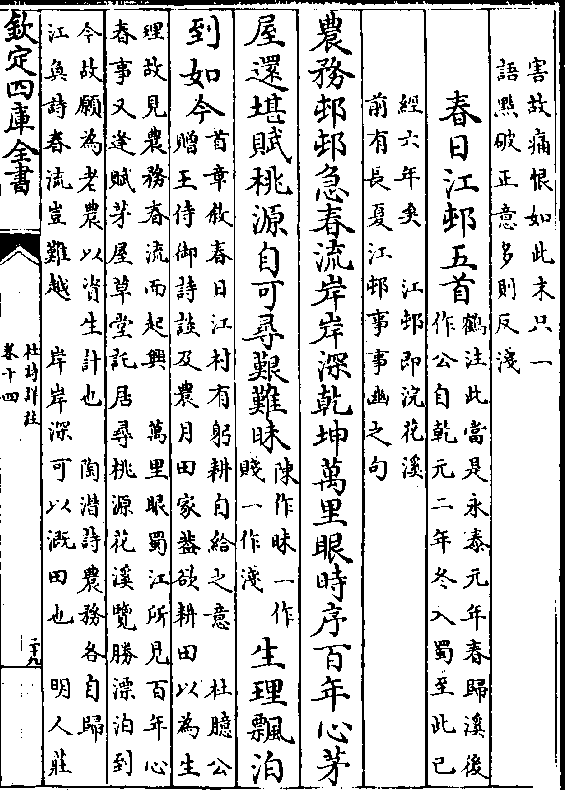 害故痛恨如此末只一
語點破正意多則反淺
春日江邨五首
鶴注此當是永泰元年春歸溪後
作公自乾元二年冬入蜀至此已
經六年矣　江邨即浣花溪
前有長夏江邨事事幽之句
農務邨邨急春流岸岸深乾坤萬里眼時序百年心茅
屋還堪賦桃源自可尋艱難昧
陳作昧一作
賤一作淺
生理飄泊
到如今
首章敘春日江村有躬耕自給之意　杜臆公
贈王侍御詩談及農月田家蓋欲耕田以為生
理故見農務春流而起興　萬里眼蜀江所見百年心
春事又逢賦茅屋草堂託居尋桃源花溪覽勝漂泊到
今故願為老農以資生計也　陶潛詩農務各自歸
江奐詩春流豈難越　岸岸深可以溉田也　明人莊
欽定四庫全書
杜詩詳註
卷十四
二十九